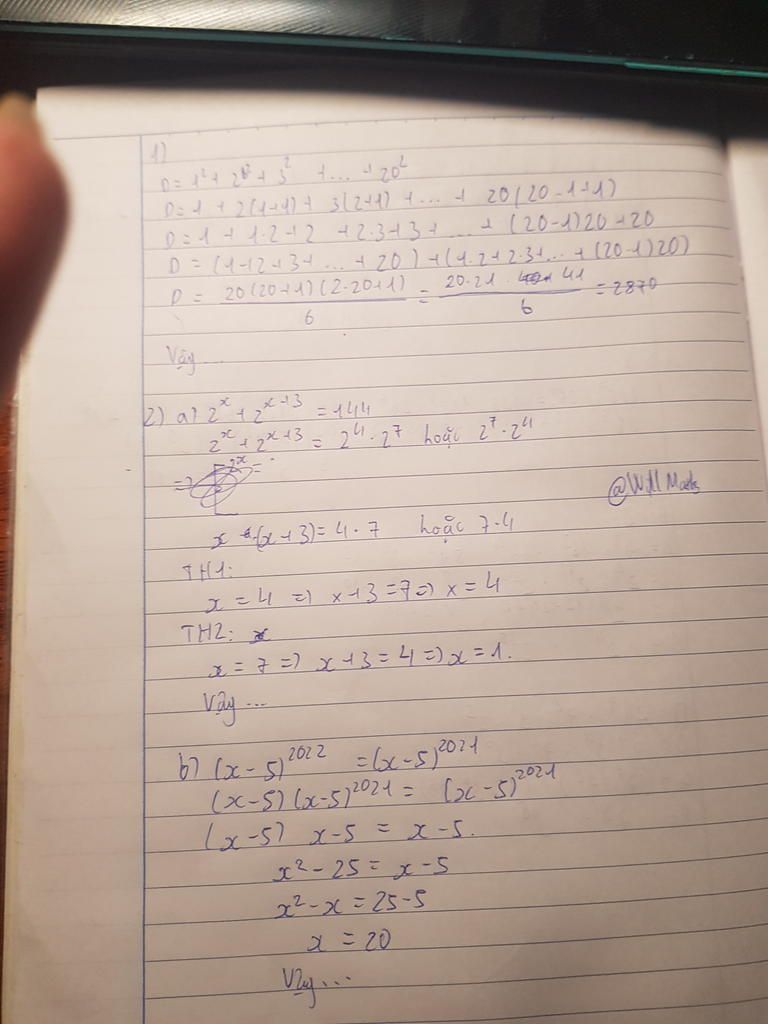 1)
D = 1² + 2² + 3² + ... + 20²
D = 1 + 2(1+1) + 3(2+1) + ... + 20(20-1+1)
D = 1 + 1.2+2 + 2.3+3+ ... + (20-1)20+20
D = (1+2+3+ ... + 20) + (1.2+2.3+... + (20-1)20)
D = 20(20+1)(2.20+1)/6 = 20.21.41/6 = 2870
Vậy...
2) a) 2^x + 2^(x+3) = 144
2^x + 2^(x+3) = 2^4 . 2^7 hoặc 2^7 . 2^4
@Will Maths
x (x+3) = 4.7 hoặc 7.4
TH1:
x = 4 => x+3 = 7 => x = 4
TH2:
x = 7 => x+3 = 4 => x = 1.
Vậy...
b) (x-5)^2022 = (x-5)^2021
(x-5)(x-5)^2021 = (x-5)^2021
(x-5) x-5 = x-5.
x² - 25 = x-5
x² - x = 25-5
x = 20
Vậy...